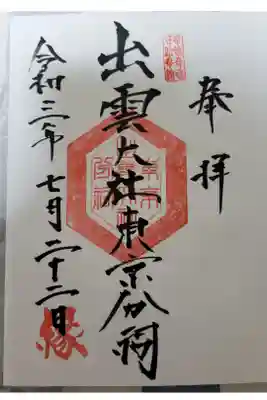 奉拝
出雲大社東京分祠
令和三年七月二十二日
縁